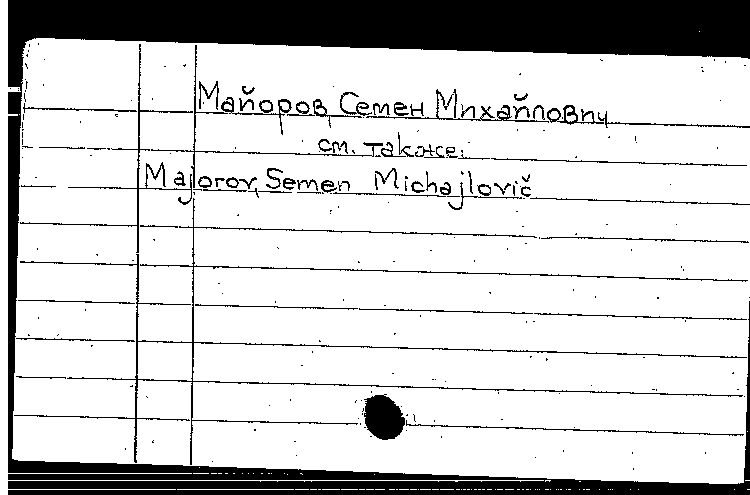 Майоров, Семен Михайлович
см. также:
Majorov, Semen Michajlovič